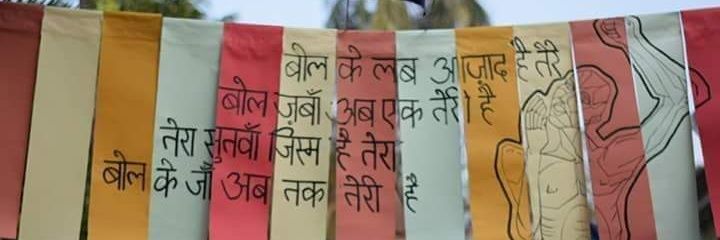 बोल के लब आज़ाद है तेरे
बोल ज़बाँ अब एक तेरी है
तेरा सुतवाँ जिस्म है तेरा
बोल के जाँ अब तक तेरी है